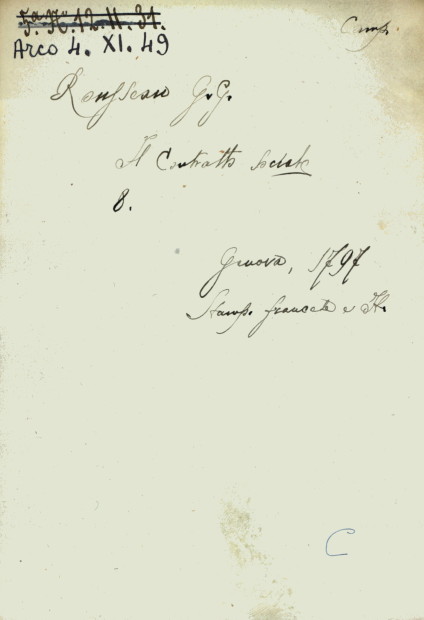 5.a H.12.II.31.
Arco 4. XI. 49
Comp.
Rousseau G. G.
Il Contratto sociale
8.
Genova, 1797
Stamp. francese e It.
C